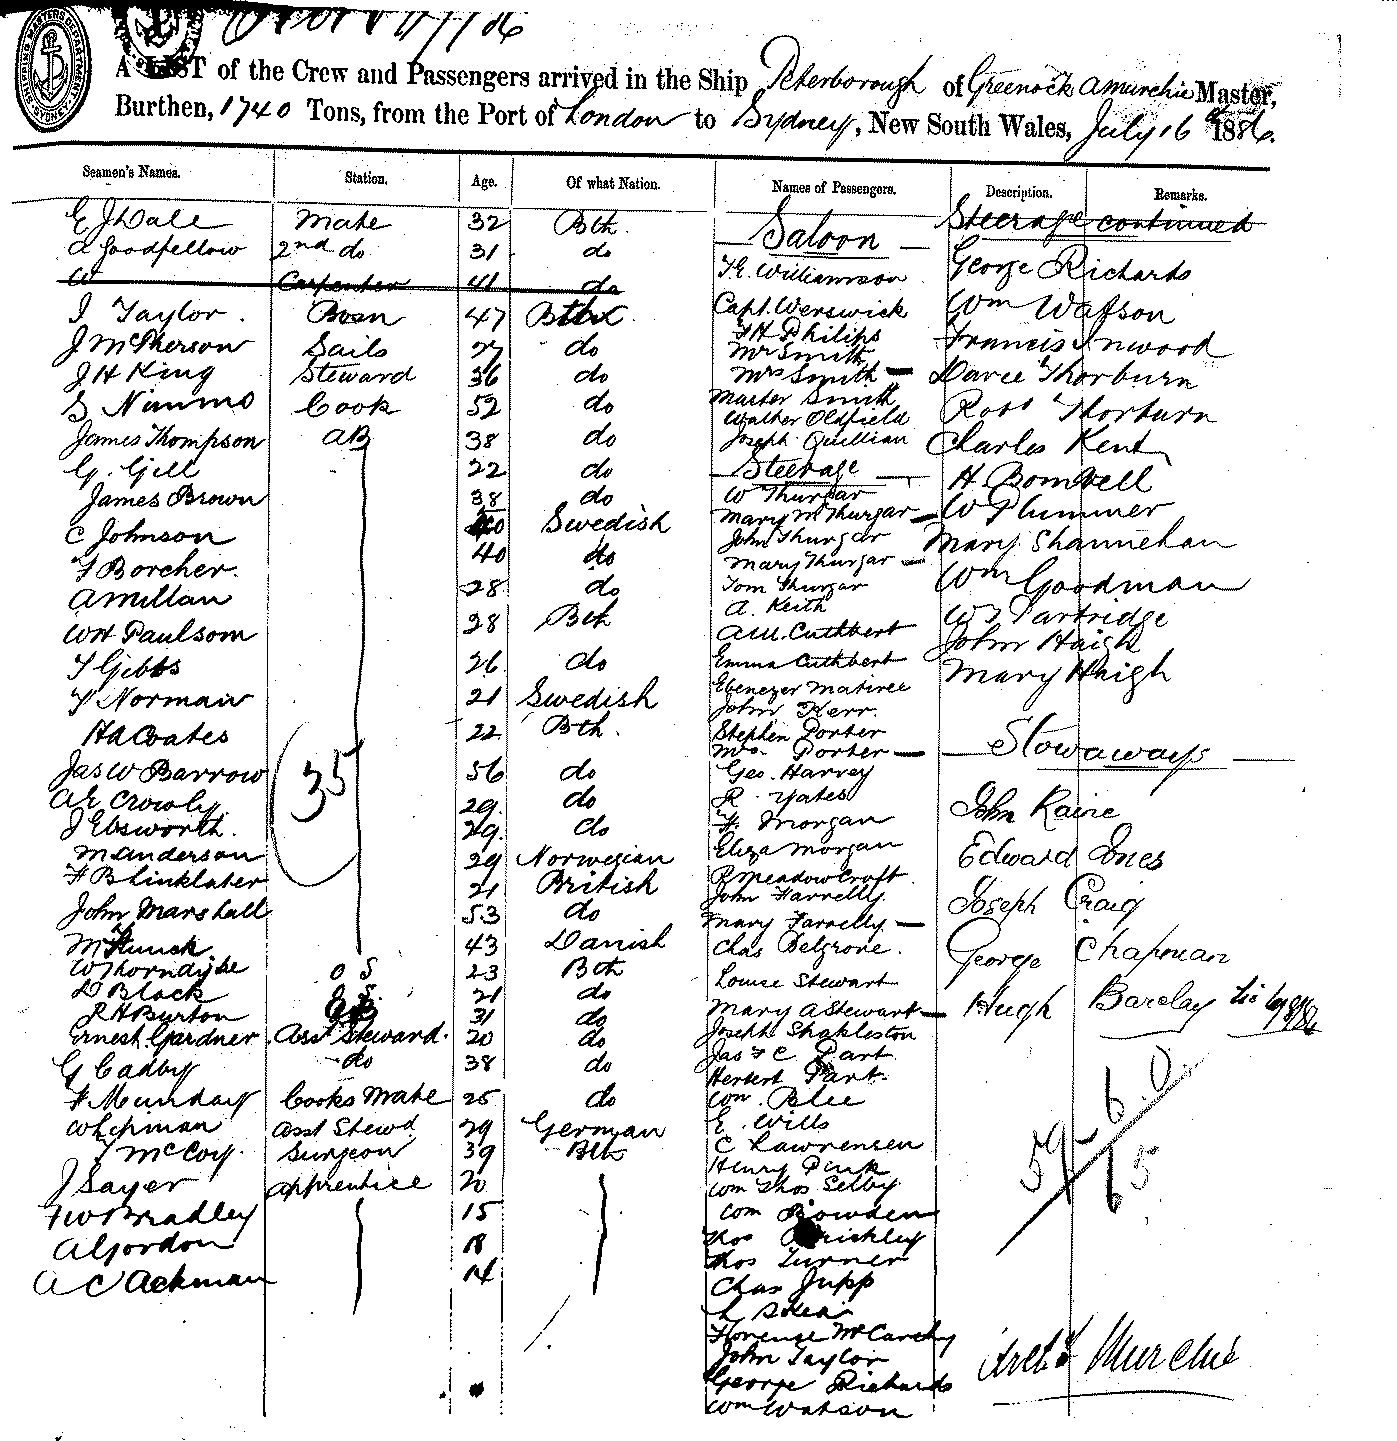 A LIST of the Crew and Passengers arrived in the Ship Peterborough of Greenock A Murchie Master,
Burthen, 1740 Tons, from the Port of London to Sydney, New South Wales, July 16th 1886.
Seamen's Names. Station. Age. Of what Nation. Names of Passengers. Description. Remarks.
E J Dale Mate 32 Bth.
A Goodfellow 2nd do 31 do
W Carpenter 41 do
J Taylor. Bosn 47 Bth
J McPherson Sails 27 do
J H King Steward 36 do
S Nimmo Cook 52 do
James Thompson AB 38 do
G. Gill 22 do
James Brown 38 do
C Johnson 40 Swedish
F Borcher. 40 do
A Millan 28 do
WH Paulsom 28 Bth
T Gibbs 26 do
T Norman 21 Swedish
HA Coates 22 Bth.
Jas W Barrow 56 do
A E Crowly 29 do
J Ebsworth. 29. do
M Anderson 29 Norwegian
F B Linklater 21 British
John Marshall 53 do
M 43 Danish
W Thorndyke O S 23 Bth
D Black O S. 21 do
R H Burton 31 do
Ernest Gardner Asst Steward. 20 do
G Cadby do 38 do
F Munday Cooks Mate 25 do
W Lipman Asst Stewd 29 German
T McCoy. Surgeon 39 Bth
J Sayer Apprentice 20
F W Bradley 15
A Gordon 18
A C Ackman 14
35
Saloon
T. E. Williamson
Capt. Werswick
F H Philips
Mr Smith
Mrs Smith
Master Smith
Walther Oldfield
Joseph Quillian
Steerage
W Thurgar
Mary M Thurgar
John Thurgar
Mary Thurgar
Tom Thurgar
A. Keith
A W. Cuthbert
Emma Cuthbert
Ebenezer Matiree
John Kerr.
Stephen Porter
Mrs. Porter
Geo. Harvey
R. Yates
F. Morgan
Eliza Morgan
R Meadowcroft.
John Farrelly.
Mary Farrelly
Chas Belgrove.
Louise Stewart
Mary A Stewart
Joseph Shakleston
Jas F C Part
Herbert Part.
Wm. Blee
E. Wills
C Lawrensen
Henry Pink
Wm Thos Selby
Wm Bowden
Thos Brickley
Thos Turner
Chas Jupp
L Shea
Florence McCarthy
John Taylor
George Richards
Wm Watson
Steerage continued
George Richards
Wm Watson
Francis Inwood
Davie Thorburn
Robt Thorburn
Charles Kent
H. Bomwell
W Plummer
Mary Shannehan
Wm Goodman
W T Partridge
John Haigh
Mary Haigh
Stowaways
John Raine
Edward Jones
Joseph Craig
George Chapman
Hugh Barclay
59 6.0
65
Archd Murchie